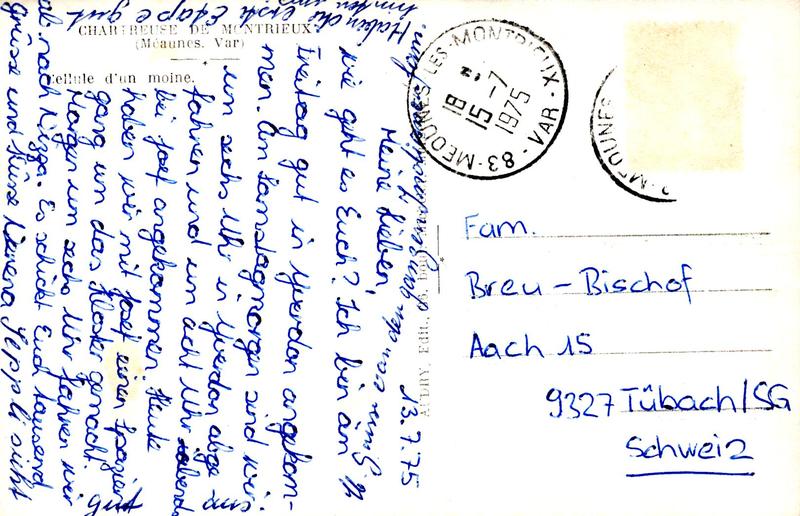 CHARTREUSE DE MONTRIEUX
(Méaunes. Var)
Cellule d'un moine.
13.7.75
Meine Lieben,
wie geht es Euch? Ich bin am
Freitag gut in Yverdon angekom-
men. Am Samstagmorgen sind wir
um sechs Uhr in Yverdon abge
fahren und um acht Uhr abends
bei Josef angekommen. Heute
haben wir mit Josef einen Spazier
gang um das Kloster gemacht.
Morgen um sechs Uhr fahren wir
ab nach Nizza. Es schickt Euch tausend
Grüsse und Küsse Verena Seppli sieht
gut
Haben die erste Etape gut
83 - MEOUNES LES - MONTRIEUX - VAR -
18 H
15 - 7
1975
MEOUNES
Fam.
Breu - Bischof
Aach 15
9327 Tübach/SG
Schweiz